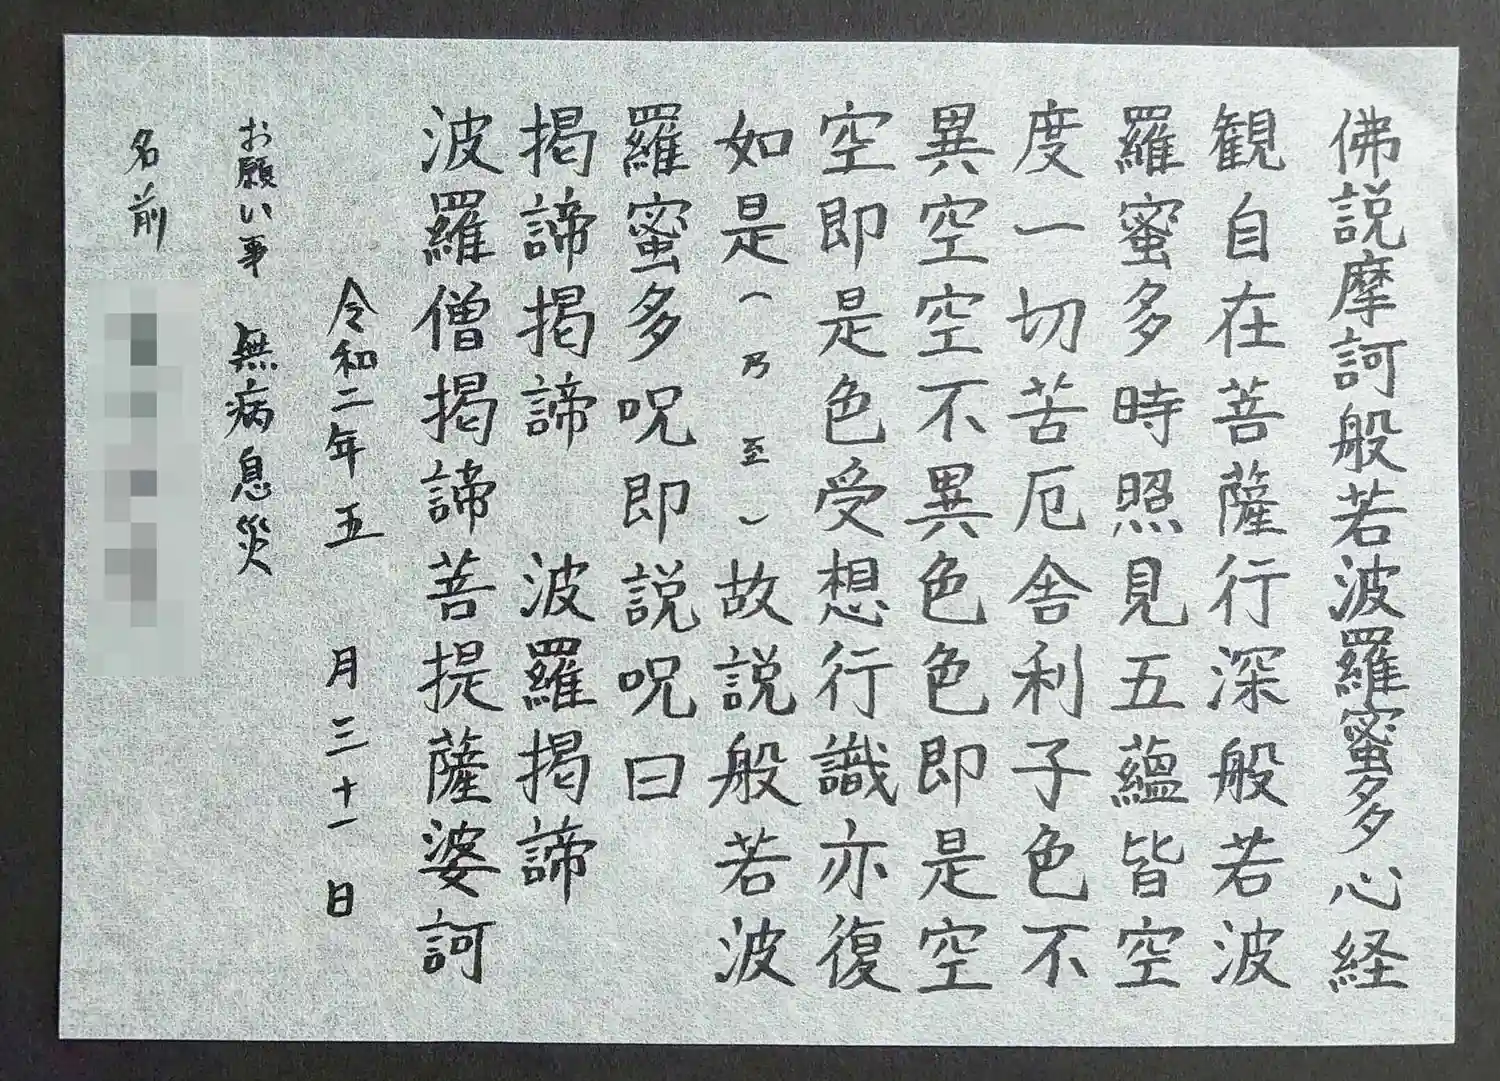 佛説摩訶般若波羅蜜多心経
観自在菩薩行深般若波
羅蜜多時照見五蘊皆空
度一切苦厄舎利子色不
異空空不異色色即是空
空即是色受想行識亦復
如是（乃至）故説般若波
羅蜜多呪即説呪曰
掲諦掲諦　波羅掲諦
波羅僧掲諦菩提薩婆訶
令和二年五　月三十一日
お願い事　無病息災
名前